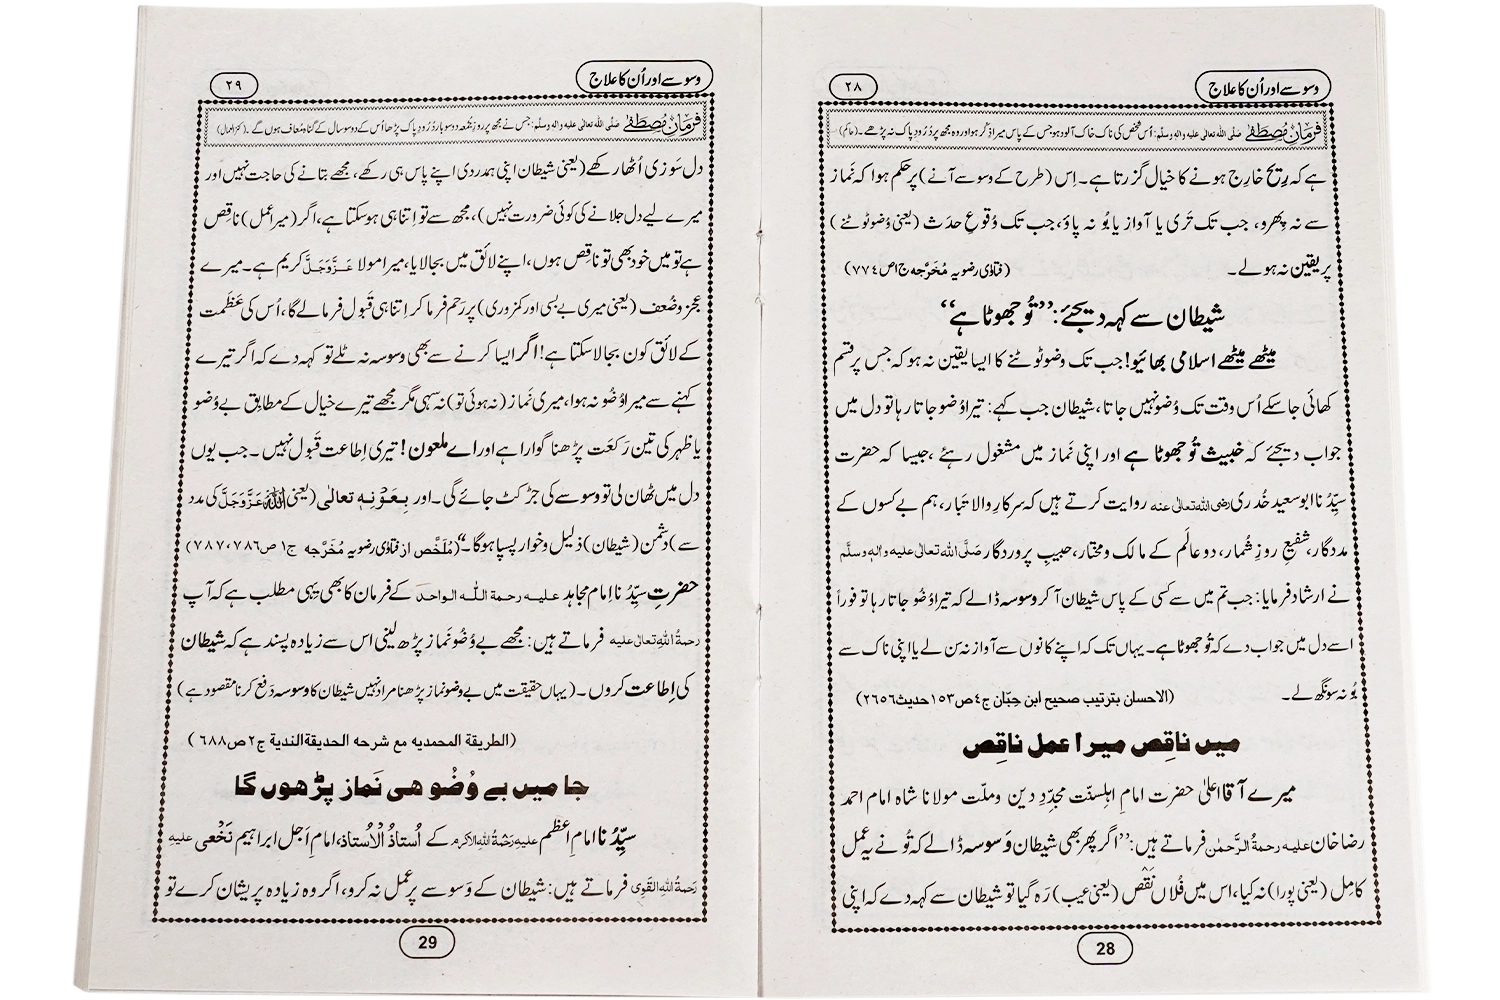 وسوسے اور اُن کا علاج
٢٨
فرمانِ مُصطَفٰے صلی اللہ تعالی علیہ والہ وسلم: اُس شخص کی ناک خاک آلود ہو جس کے پاس میرا ذکر ہو اور وہ مجھ پر دُرُودِ پاک نہ پڑھے۔ (حاکم)
ہے کہ رِیح خارِج ہونے کا خیال گزرتا ہے۔ اِس (طرح کے وسوسے آنے) پر حکم ہوا کہ نَماز
سے نہ پِھرو، جب تک تَری یا آواز یا بُو نہ پاؤ، جب تک وُقوعِ حدَث (یعنی وُضو ٹوٹنے)
پر یقین نہ ہولے۔ (فتاوٰی رضویہ مُخَرَّجہ ج١ص٧٧٤)
شیطان سے کہہ دیجئے: ’’تُو جھوٹا ہے‘‘
میٹھے میٹھے اسلامی بھائیو! جب تک وضو ٹوٹنے کا ایسا یقین نہ ہو کہ جس پر قسم
کھائی جا سکے اُس وقت تک وُضو نہیں جاتا، شیطان جب کہے: تیرا وُضو جاتا رہا تو دل میں
جواب دیجئے کہ خبیث تُو جھوٹا ہے اور اپنی نماز میں مشغول رہئے، جیسا کہ حضرت
سیِّدُنا ابو سعید خُدری رضی اللہ تعالٰی عنہ روایت کرتے ہیں کہ سرکارِ والا تبار، ہم بے کسوں کے
مددگار، شفیعِ روزِ شُمار، دو عالَم کے مالک و مختار، حبیبِ پروردگار صَلَّی اللہُ تعالٰی علیہ واٰلہٖ وسلَّم
نے ارشاد فرمایا: جب تم میں سے کسی کے پاس شیطان آ کر وسوسہ ڈالے کہ تیرا وُضو جاتا رہا تو فوراً
اسے دل میں جواب دے کہ تُو جھوٹا ہے۔ یہاں تک کہ اپنے کانوں سے آواز نہ سن لے یا اپنی ناک سے
بُو نہ سونگھ لے۔ (الاحسان بترتیب صحیح ابن حِبّان ج٤ص١٥٣حدیث٢٦٥٦)
میں ناقِص میرا عمل ناقِص
میرے آقا اعلیٰ حضرت امامِ اہلسنّت مجدِّدِ دین وملّت مولانا شاہ امام احمد
رضا خان علیہ رحمۃُ الرَّحمٰن فرماتے ہیں: ’’اگر پھر بھی شیطان وَسوسہ ڈالے کہ تُو نے یہ عمل
کامِل (یعنی پورا) نہ کیا، اس میں فُلاں نَقْص (یعنی عیب) رَہ گیا تو شیطان سے کہہ دے کہ اپنی
28
وسوسے اور اُن کا علاج
٢٩
فرمانِ مُصطَفٰے صلی اللہ تعالی علیہ والہ وسلم: جس نے مجھ پر روزِ جُمُعہ دو سو بار دُرُودِ پاک پڑھا اُس کے دو سو سال کے گناہ مُعاف ہوں گے۔ (کنز العمال)
دل سَوزی اُٹھا رکھے (یعنی شیطان اپنی ہمدردی اپنے پاس ہی رکھے، مجھے بتانے کی حاجت نہیں اور
میرے لیے دل جلانے کی کوئی ضرورت نہیں)، مجھ سے تو اِتنا ہی ہو سکتا ہے، اگر (میرا عمل) ناقِص
ہے تو میں خود بھی تو ناقِص ہوں، اپنے لائق میں بجا لایا، میرا مولا عَزَّوَجَلَّ کریم ہے۔ میرے
عجز و ضُعف (یعنی میری بے بسی اور کمزوری) پر رَحم فرما کر اِتنا ہی قَبول فرما لے گا، اُس کی عَظَمت
کے لائق کون بجا لا سکتا ہے! اگر ایسا کرنے سے بھی وسوسہ نہ ٹلے تو کہہ دے کہ اگر تیرے
کہنے سے میرا وُضُو نہ ہوا، میری نَماز (نہ ہوئی تو) نہ سہی مگر مجھے تیرے خیال کے مطابق بے وُضو
یا ظہر کی تین رَکعَت پڑھنا گوارا ہے اور اے ملعون! تیری اِطاعت قَبول نہیں۔ جب یوں
دل میں ٹھان لی تو وسوسے کی جڑ کٹ جائے گی۔ اور بِعَوْنِہٖ تعالٰی (یعنی اللہ عَزَّوَجَلَّ کی مدد
سے) دشمن (شیطان) ذلیل و خوار پسپا ہوگا۔‘‘ (مُلَخَّص از فتاوٰی رضویہ مُخَرَّجہ ج١ ص٧٨٦،٧٨٧)
حضرتِ سیِّدُنا اِمام مجاہد علیہ رحمۃ اللّٰہ الواحد کے فرمان کا بھی یہی مطلب ہے کہ آپ
رحمۃُ اللہِ تعالٰی علیہ فرماتے ہیں: مجھے بے وُضُو نَماز پڑھ لینی اس سے زیادہ پسند ہے کہ شیطان
کی اِطاعت کروں۔ (یہاں حقیقت میں بے وضو نَماز پڑھنا مراد نہیں شیطان کا وسوسہ دَفع کرنا مقصود ہے)
(الطریقۃ المحمدیہ مع شرحہ الحدیقۃالندیۃ ج٢ص٦٨٨)
جا میں بے وُضُو ھی نَماز پڑھوں گا
سیِّدُنا امامِ اعظم علیہ رَحمَۃُ اللہِ الاکرم کے اُستاذُ الْاُستاذ، امامِ اَجل ابراہیم نَخَعی علیہ
رَحمۃُ اللہِ القَوِی فرماتے ہیں: شیطان کے وَسوسے پر عمل نہ کرو، اگر وہ زیادہ پریشان کرے تو
29